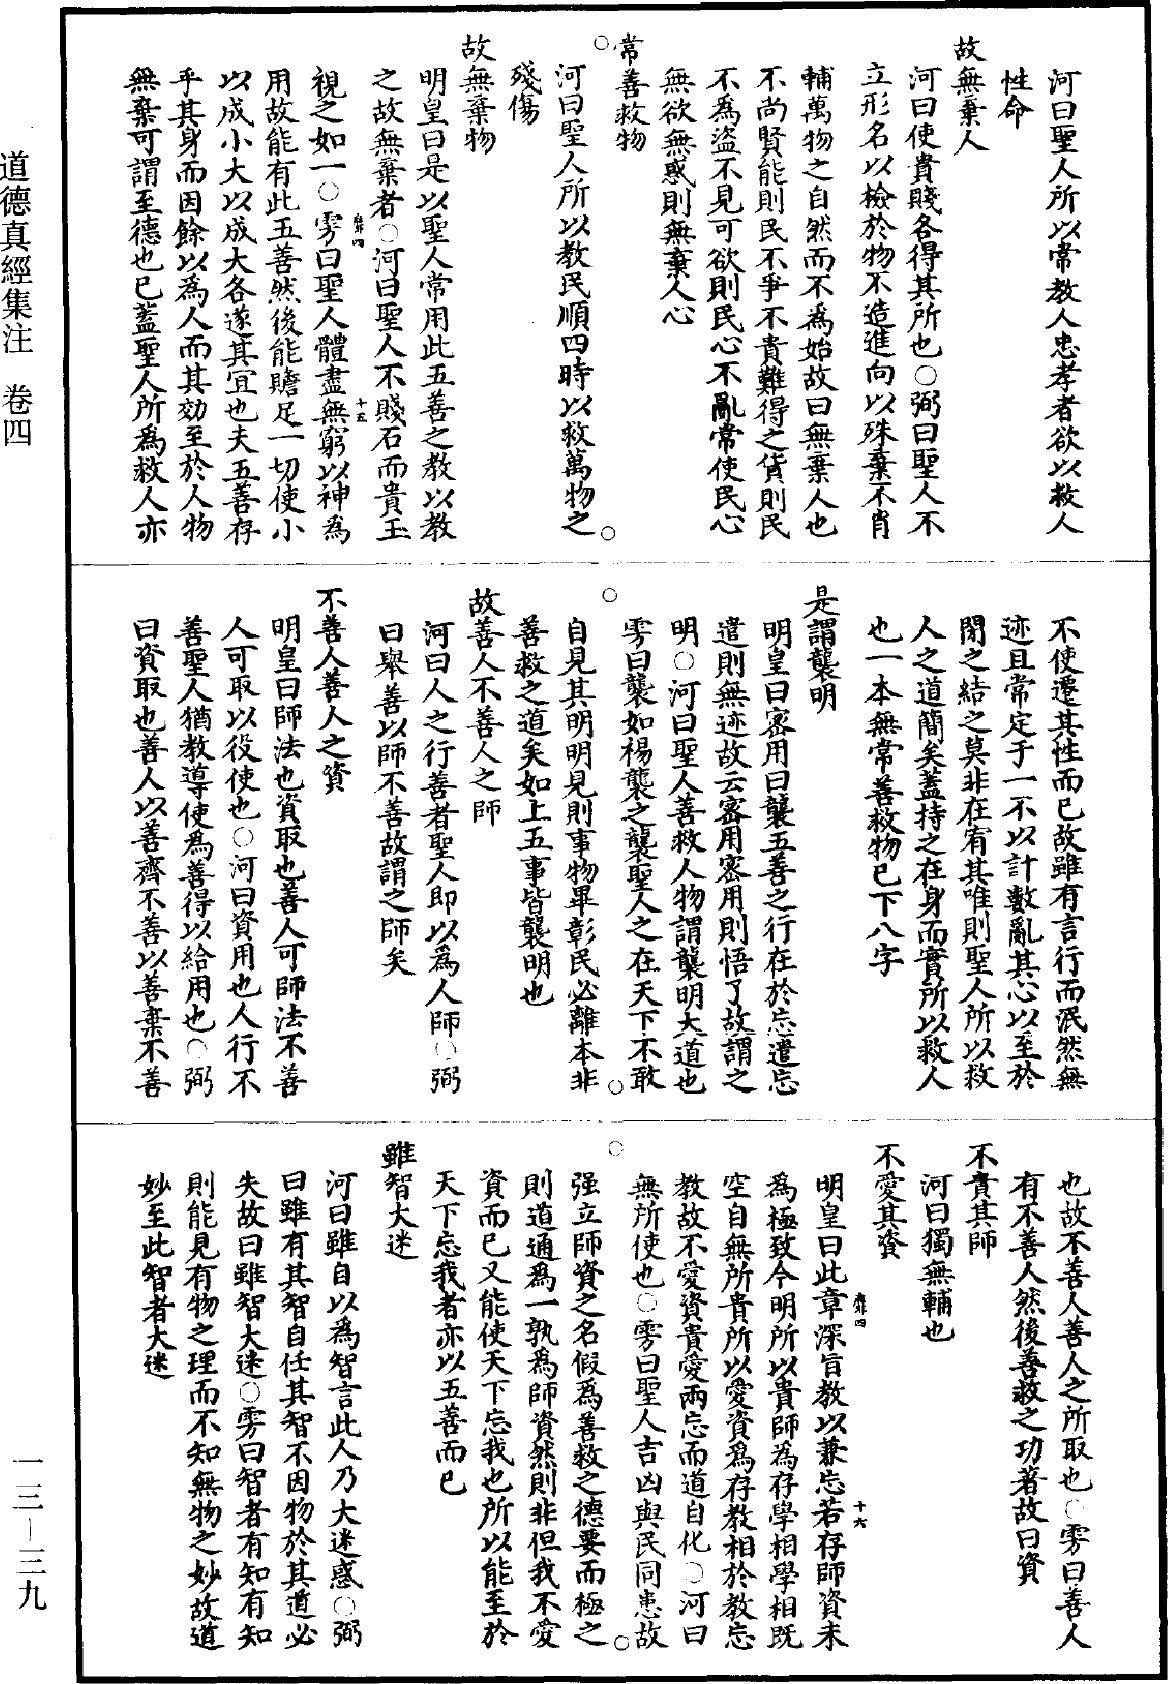 河曰聖人所以常教人忠孝者欲以救人
性命
故無棄人
河曰使貴賤各得其所也○弼曰聖人不
立形名以檢於物不造進向以殊棄不肖
輔萬物之自然而不為始故曰無棄人也
不尚賢能則民不爭不貴難得之貨則民
不為盜不見可欲則民心不亂常使民心
無欲無惑則無棄人心
常善救物
河曰聖人所以教民順四時以救萬物之
殘傷
故無棄物
明皇曰是以聖人常用此五善之教以教
之故無棄者○河曰聖人不賤石而貴玉
視之如一○雱曰聖人體盡無窮以神為
靡四
十五
用故能有此五善然後能贍足一切使小
以成小大以成大各遂其宜也夫五善存
乎其身而因餘以為人而其効至於人物
無棄可謂至德也已蓋聖人所為救人亦
不使遷其性而已故雖有言行而泯然無
迹且常定于一不以計數亂其心以至於
閉之結之莫非在宥其唯則聖人所以救
人之道簡矣蓋持之在身而實所以救人
也一本無常善救物已下八字
是謂襲明
明皇曰密用曰襲五善之行在於忘遣忘
遣則無迹故云密用密用則悟了故謂之
明○河曰聖人善救人物謂襲明大道也
雱曰襲如裼襲之襲聖人之在天下不敢
自見其明明見則事物畢彰民必離本非
善救之道矣如上五事皆襲明也
故善人不善人之師
河曰人之行善者聖人即以為人師○弼
曰舉善以師不善故謂之師矣
不善人善人之資
明皇曰師法也資取也善人可師法不善
人可取以役使也○河曰資用也人行不
善聖人猶教導使為善得以給用也○弼
曰資取也善人以善齊不善以善棄不善
也故不善人善人之所取也○雱曰善人
有不善人然後善救之功著故曰資
不貴其師
河曰獨無輔也
不愛其資
明皇曰此章深旨教以兼忘若存師資未
靡四
十六
為極致今明所以貴師為存學相學相既
空自無所貴所以愛資為存教相於教忘
教故不愛資貴愛兩忘而道自化○河曰
無所使也○雱曰聖人吉凶與民同患故
强立師資之名假為善救之德要而極之
則道通為一孰為師資然則非但我不愛
資而已又能使天下忘我也所以能至於
天下忘我者亦以五善而已
雖智大迷
河曰雖自以為智言此人乃大迷惑○弼
曰雖有其智自任其智不因物於其道必
失故曰雖智大迷○雱曰智者有知有知
則能見有物之理而不知無物之妙故道
妙至此智者大迷
道德真經集注 卷四
一三—三九